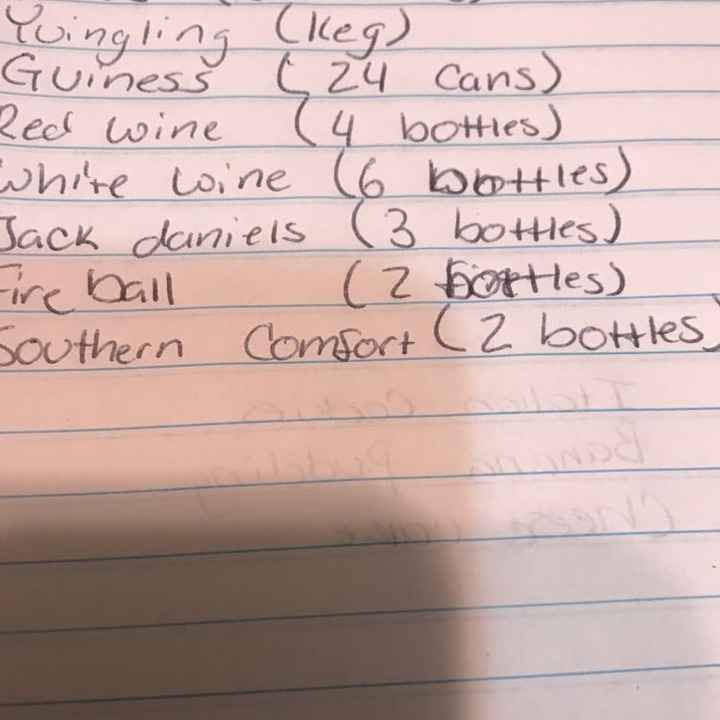 Yuingling (Keg)
Guiness (24 Cans)
Red wine (4 bottles)
White wine (6 bottles)
Jack daniels (3 bottles)
Fire ball (2 bottles)
Southern Comfort (2 bottles)
Italian Cookies
Banana Pudding